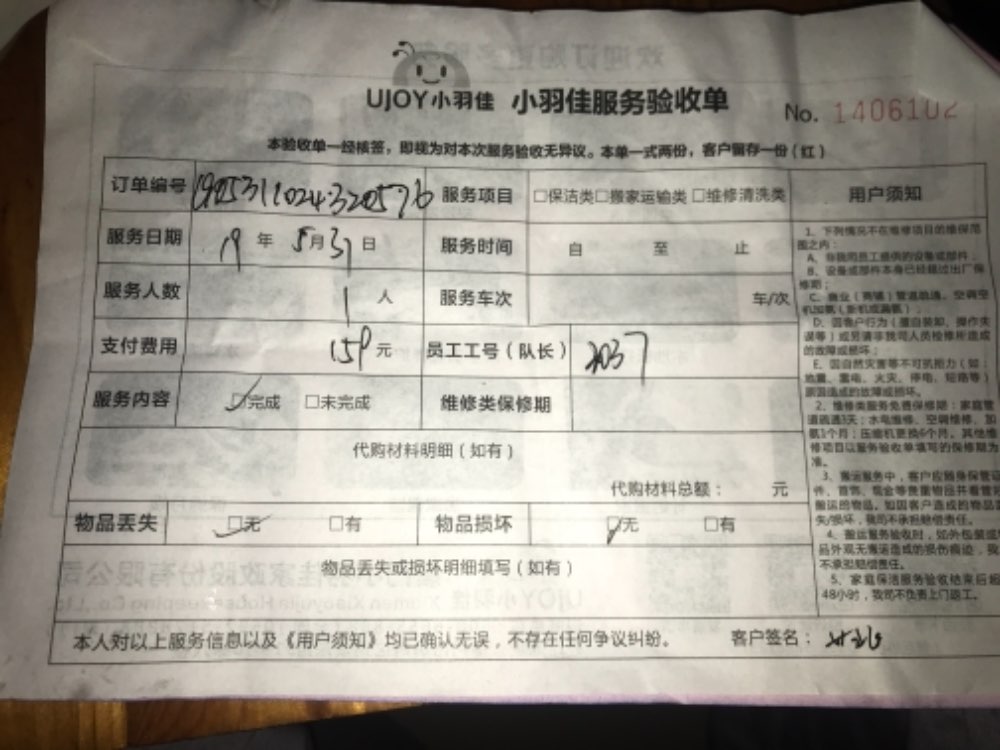 UJOY小羽佳 小羽佳服务验收单
No. 1406102
本验收单一经核签，即视为对本次服务验收无异议。本单一式两份，客户留存一份（红）
订单编号 1905311024320576 服务项目 □保洁类□搬家运输类 □维修清洗类 用户须知
服务日期 19 年 5月31日 服务时间 自 至 止
服务人数 1 人 服务车次 车/次
支付费用 159元 员工工号（队长） 2037
服务内容 □完成 □未完成 维修类保修期
代购材料明细（如有）
代购材料总额： 元
物品丢失 □无 □有 物品损坏 □无 □有
物品丢失或损坏明细填写（如有）
本人对以上服务信息以及《用户须知》均已确认无误，不存在任何争议纠纷。 客户签名：
1、下列情况不在维修项目的维保范
围之内：
A、非我司员工提供的设备或部件；
B、设备或部件本身已经超过出厂保
修期；
C、商业（商铺）管道疏通、空调空
机加氨（拆机或漏氨）；
D、因客户行为（擅自装卸、操作失
误等）或另请非我司人员检修所造成
的故障或损坏；
E、因自然灾害等不可抗力（如：
地震、雷电、火灾、停电、短路等）
原因造成的故障或损坏。
2、维修类服务免费保修期：家庭管
道疏通3天；水电维修、空调维修、加
氨1个月；压缩机更换6个月。其他维
修项目以服务验收单填写的保修期为
准。
3、搬运服务中，客户应随身保管证
件、首饰、现金等贵重物品并看管
搬运的物品。如因客户造成的物品丢
失/损坏，我司不承担赔偿责任。
4、搬运服务验收时，如外包装或
品外观无搬运造成的损伤痕迹，我
不承担赔偿责任。
5、家庭保洁服务验收结束后超
48小时，我司不负责上门返工。